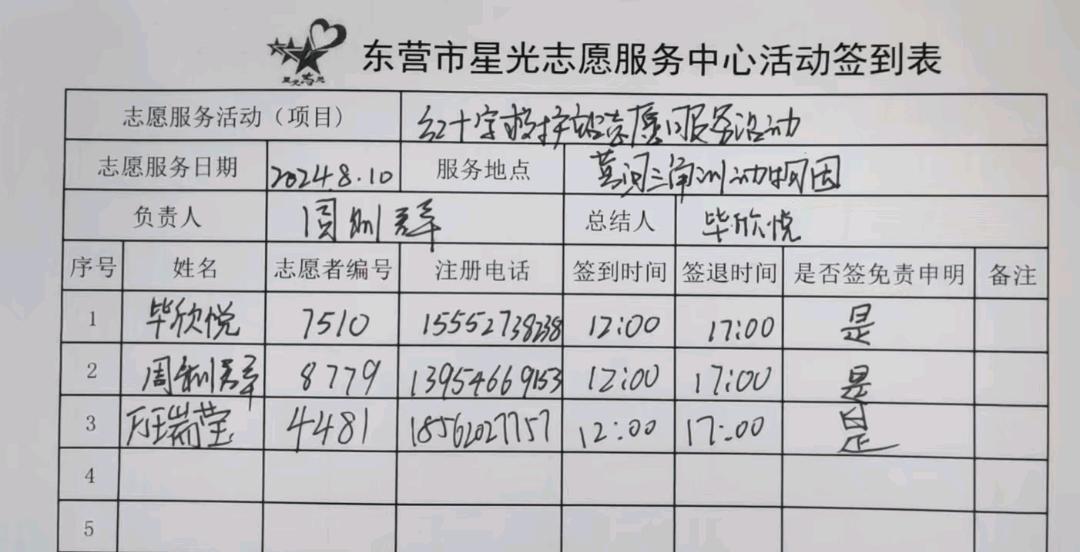 东营市星光志愿服务中心活动签到表
志愿服务活动（项目） 红十字救护站志愿服务活动
志愿服务日期 2024.8.10 服务地点 黄河三角洲动物园
负责人 周 总结人 毕欣悦
序号 姓名 志愿者编号 注册电话 签到时间 签退时间 是否签免责申明 备注
1 毕欣悦 7510 15552738238 12:00 17:00 是
2 周 8779 13954669153 12:00 17:00 是
3 瑞莹 4481 18562027757 12:00 17:00 是
4
5